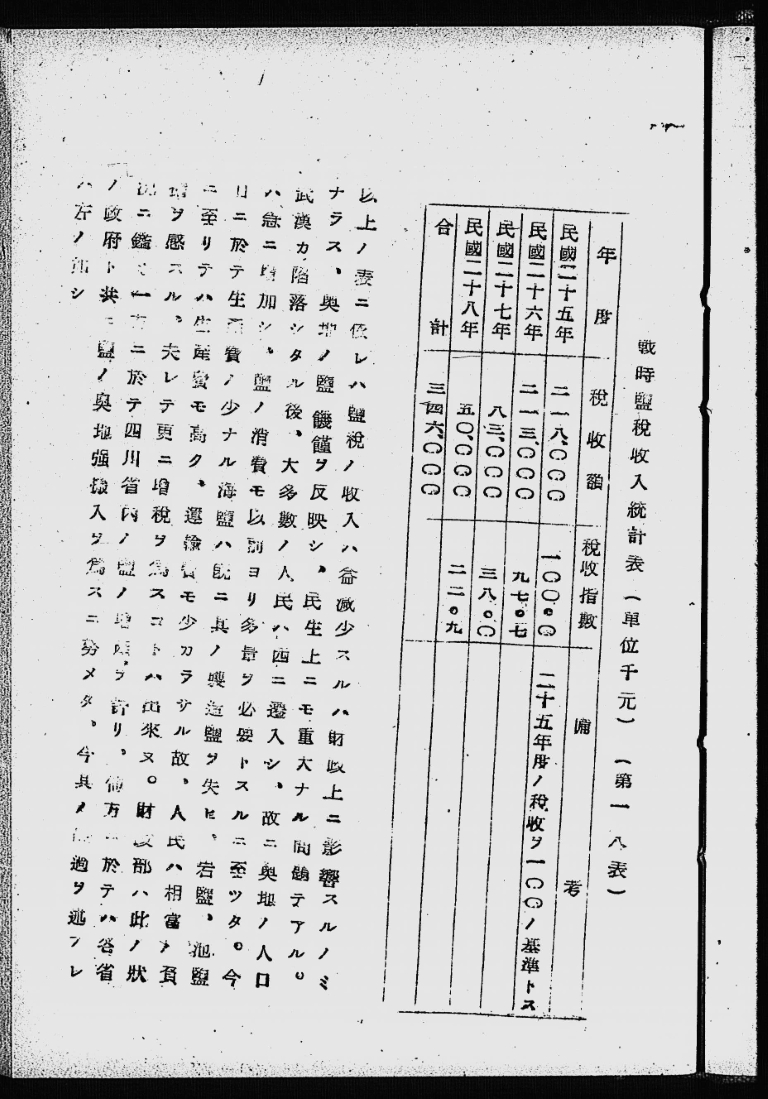 戰時鹽稅收入統計表（單位千元）（第一八表）
年度 稅收額 稅收指數 備考
民國二十五年 二一八、〇〇〇 一〇〇。〇 二十五年度ノ稅收ヲ一〇〇ノ基準トス
民國二十六年 二一三、〇〇〇 九七。七
民國二十七年 八三、〇〇〇 三八。〇
民國二十八年 五〇、〇〇〇 二二。九
合計 三四六、〇〇〇
以上ノ表ニ依レハ鹽稅ノ收入ハ益減少スルハ財政上ニ影響スルノミ
ナラス、奥地ノ鹽饑饉ヲ反映シ、民生上ニモ重大ナル問題テアル。
武漢カ陷落シタル後、大多數ノ人民ハ西ニ遷入シ、故ニ奥地ノ人口
ハ急ニ增加シ、鹽ノ消費モ以前ヨリ多量ヲ必要トスルニ至ツタ。今
日ニ於テ生産費ノ少ナル海鹽ハ既ニ其ノ製造鹽ヲ失ヒ、岩鹽、池鹽
ニ至リテハ生産費モ高ク、運輸費モ少カラサル故、人民ハ相當ノ負
擔ヲ感スル、夫レテ更ニ增稅ヲ爲スコトハ出來ヌ。財政部ハ此ノ狀
況ニ鑑ミ一方ニ於テ四川省内ノ鹽ノ增産ヲ計リ、他方ニ於テハ各省
ノ政府ト共ニ鹽ノ奥地强搬入ヲ爲スニ努メタ、今其ノ經過ヲ述フレ
ハ左ノ如シ